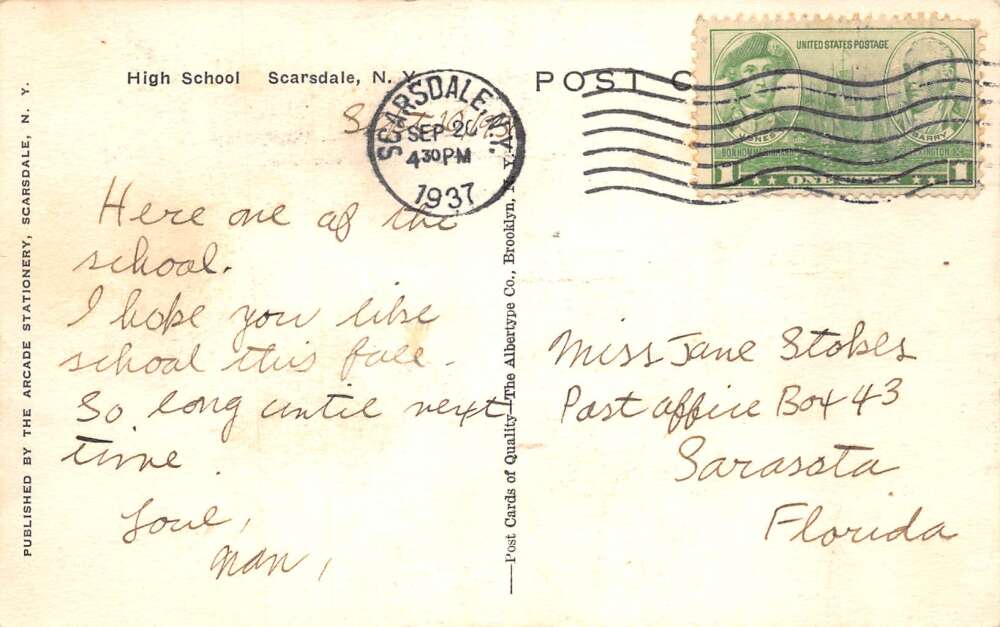 High School Scarsdale, N. Y.
SCARSDALE, N.Y.
SEP 20
4 30 PM
1937
POST C
UNITED STATES POSTAGE
JONES
BARRY
BON HOMME RICHARD
1 ONE CENT 1
Here one of the
school.
I hope you like
school this fall.
So long until next
time.
Love,
Nan,
Miss Jane Stokes
Post office Box 43
Sarasota
Florida
PUBLISHED BY THE ARCADE STATIONERY, SCARSDALE, N. Y.
Post Cards of Quality—The Albertype Co., Brooklyn, N. Y.